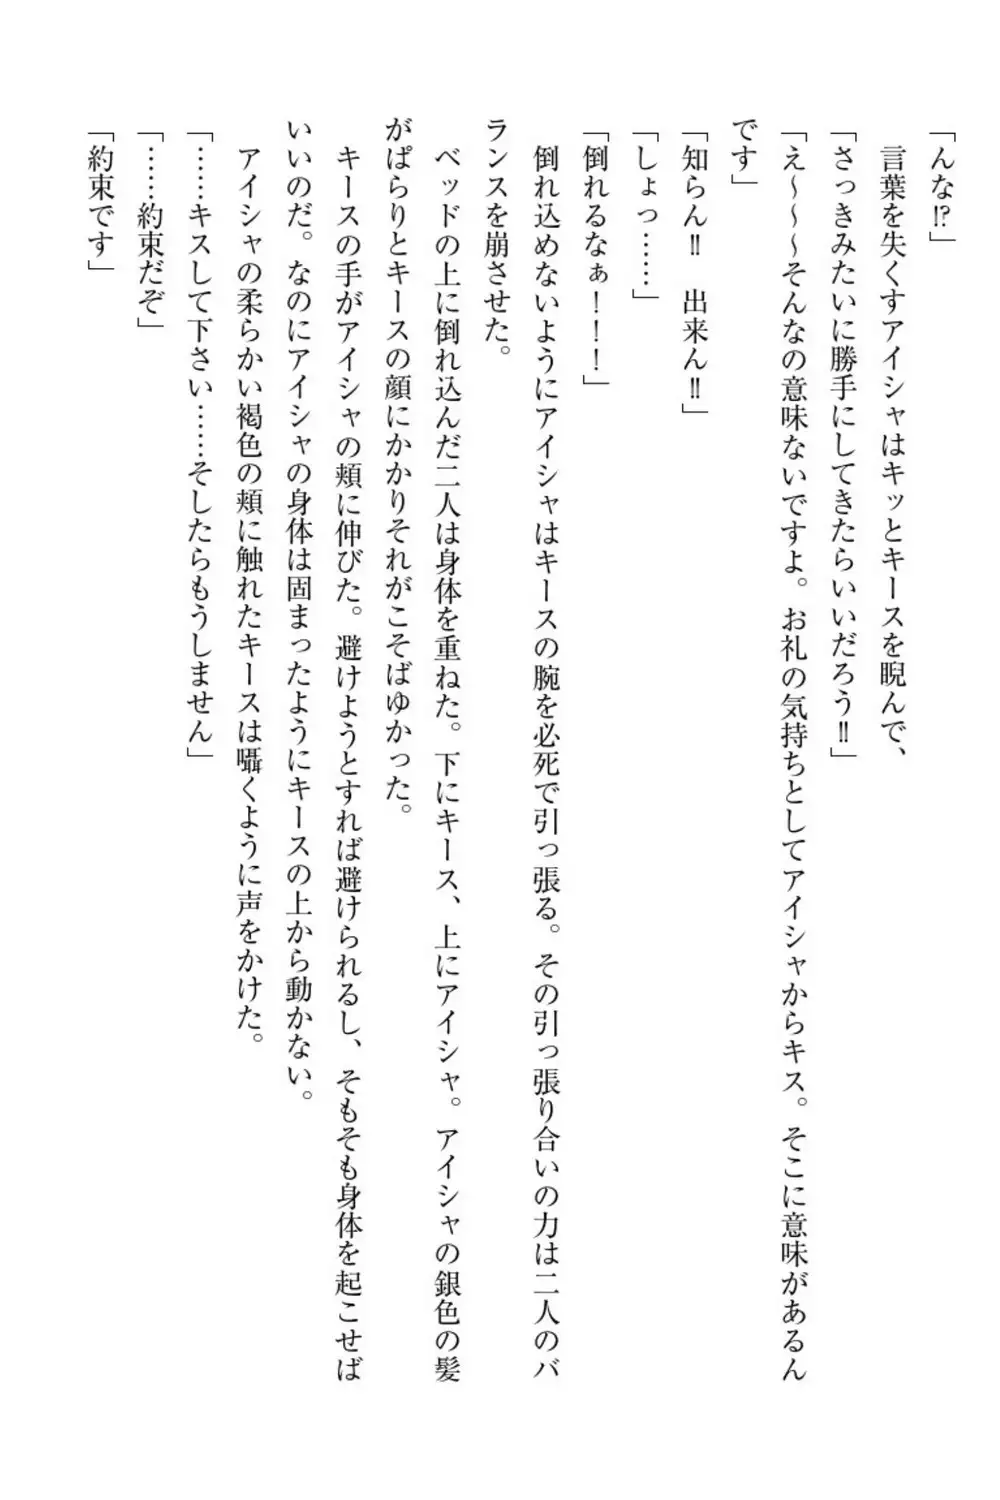 「んな⁉」
　言葉を失くすアイシャはキッとキースを睨んで、
「さっきみたいに勝手にしてきたらいいだろう‼」
「え～～～そんなの意味ないですよ。お礼の気持ちとしてアイシャからキス。そこに意味があるん
です」
「知らん‼　出来ん‼」
「しょっ……」
「倒れるなぁ！！！」
　倒れ込めないようにアイシャはキースの腕を必死で引っ張る。その引っ張り合いの力は二人のバ
ランスを崩させた。
　ベッドの上に倒れ込んだ二人は身体を重ねた。下にキース、上にアイシャ。アイシャの銀色の髪
がぱらりとキースの顔にかかりそれがこそばゆかった。
　キースの手がアイシャの頬に伸びた。避けようとすれば避けられるし、そもそも身体を起こせば
いいのだ。なのにアイシャの身体は固まったようにキースの上から動かない。
　アイシャの柔らかい褐色の頬に触れたキースは囁くように声をかけた。
「……キスして下さい……そしたらもうしません」
「……約束だぞ」
「約束です」